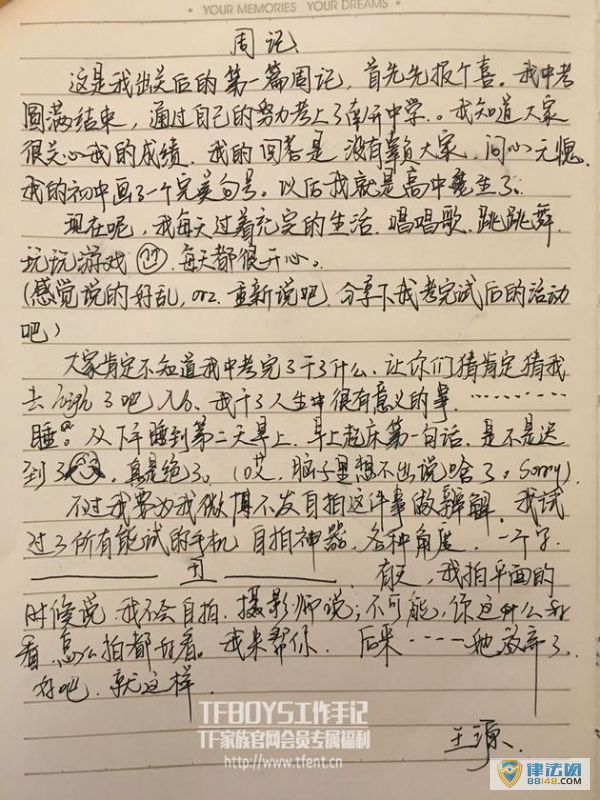 YOUR MEMORIES YOUR DREAMS
周记
这是我出关后的第一篇周记,首先先报个喜。我中考
圆满结束,通过自己的努力考上了南开中学。我知道大家
很关心我的成绩,我的回答是 没有辜负大家,问心无愧.
我的初中画了一个完美句号。以后我就是高中生了。
现在呢,我每天过着充实的生活,唱唱歌,跳跳舞
玩玩游戏,每天都很开心。
(感觉说的好乱,orz. 重新说吧,分享下我考完试后的活动
吧)
大家肯定不知道我中考完了干了什么,让你们猜肯定猜我
去 high 了吧 No. 我干了人生中很有意义的事………
睡。从下午睡到第二天早上,早上起床第一句话,是不是迟
到了,真是绝了。(哎,脑子里想不出说啥了,Sorry)
不过我要为我微博不发自拍这件事做辩解,我试
过了所有能试的手机,自拍神器,各种角度,一个字.
丑 有天,我拍平面的
时候说,我不会自拍,摄影师说:不可能,你这么好
看,怎么拍都好看。我来帮你. 后来……她放弃了.
好吧,就这样.
王源.
TFBOYS工作手记
TF家族官网会员专属福利
http://www.tfent.cn
律法网
88148.com